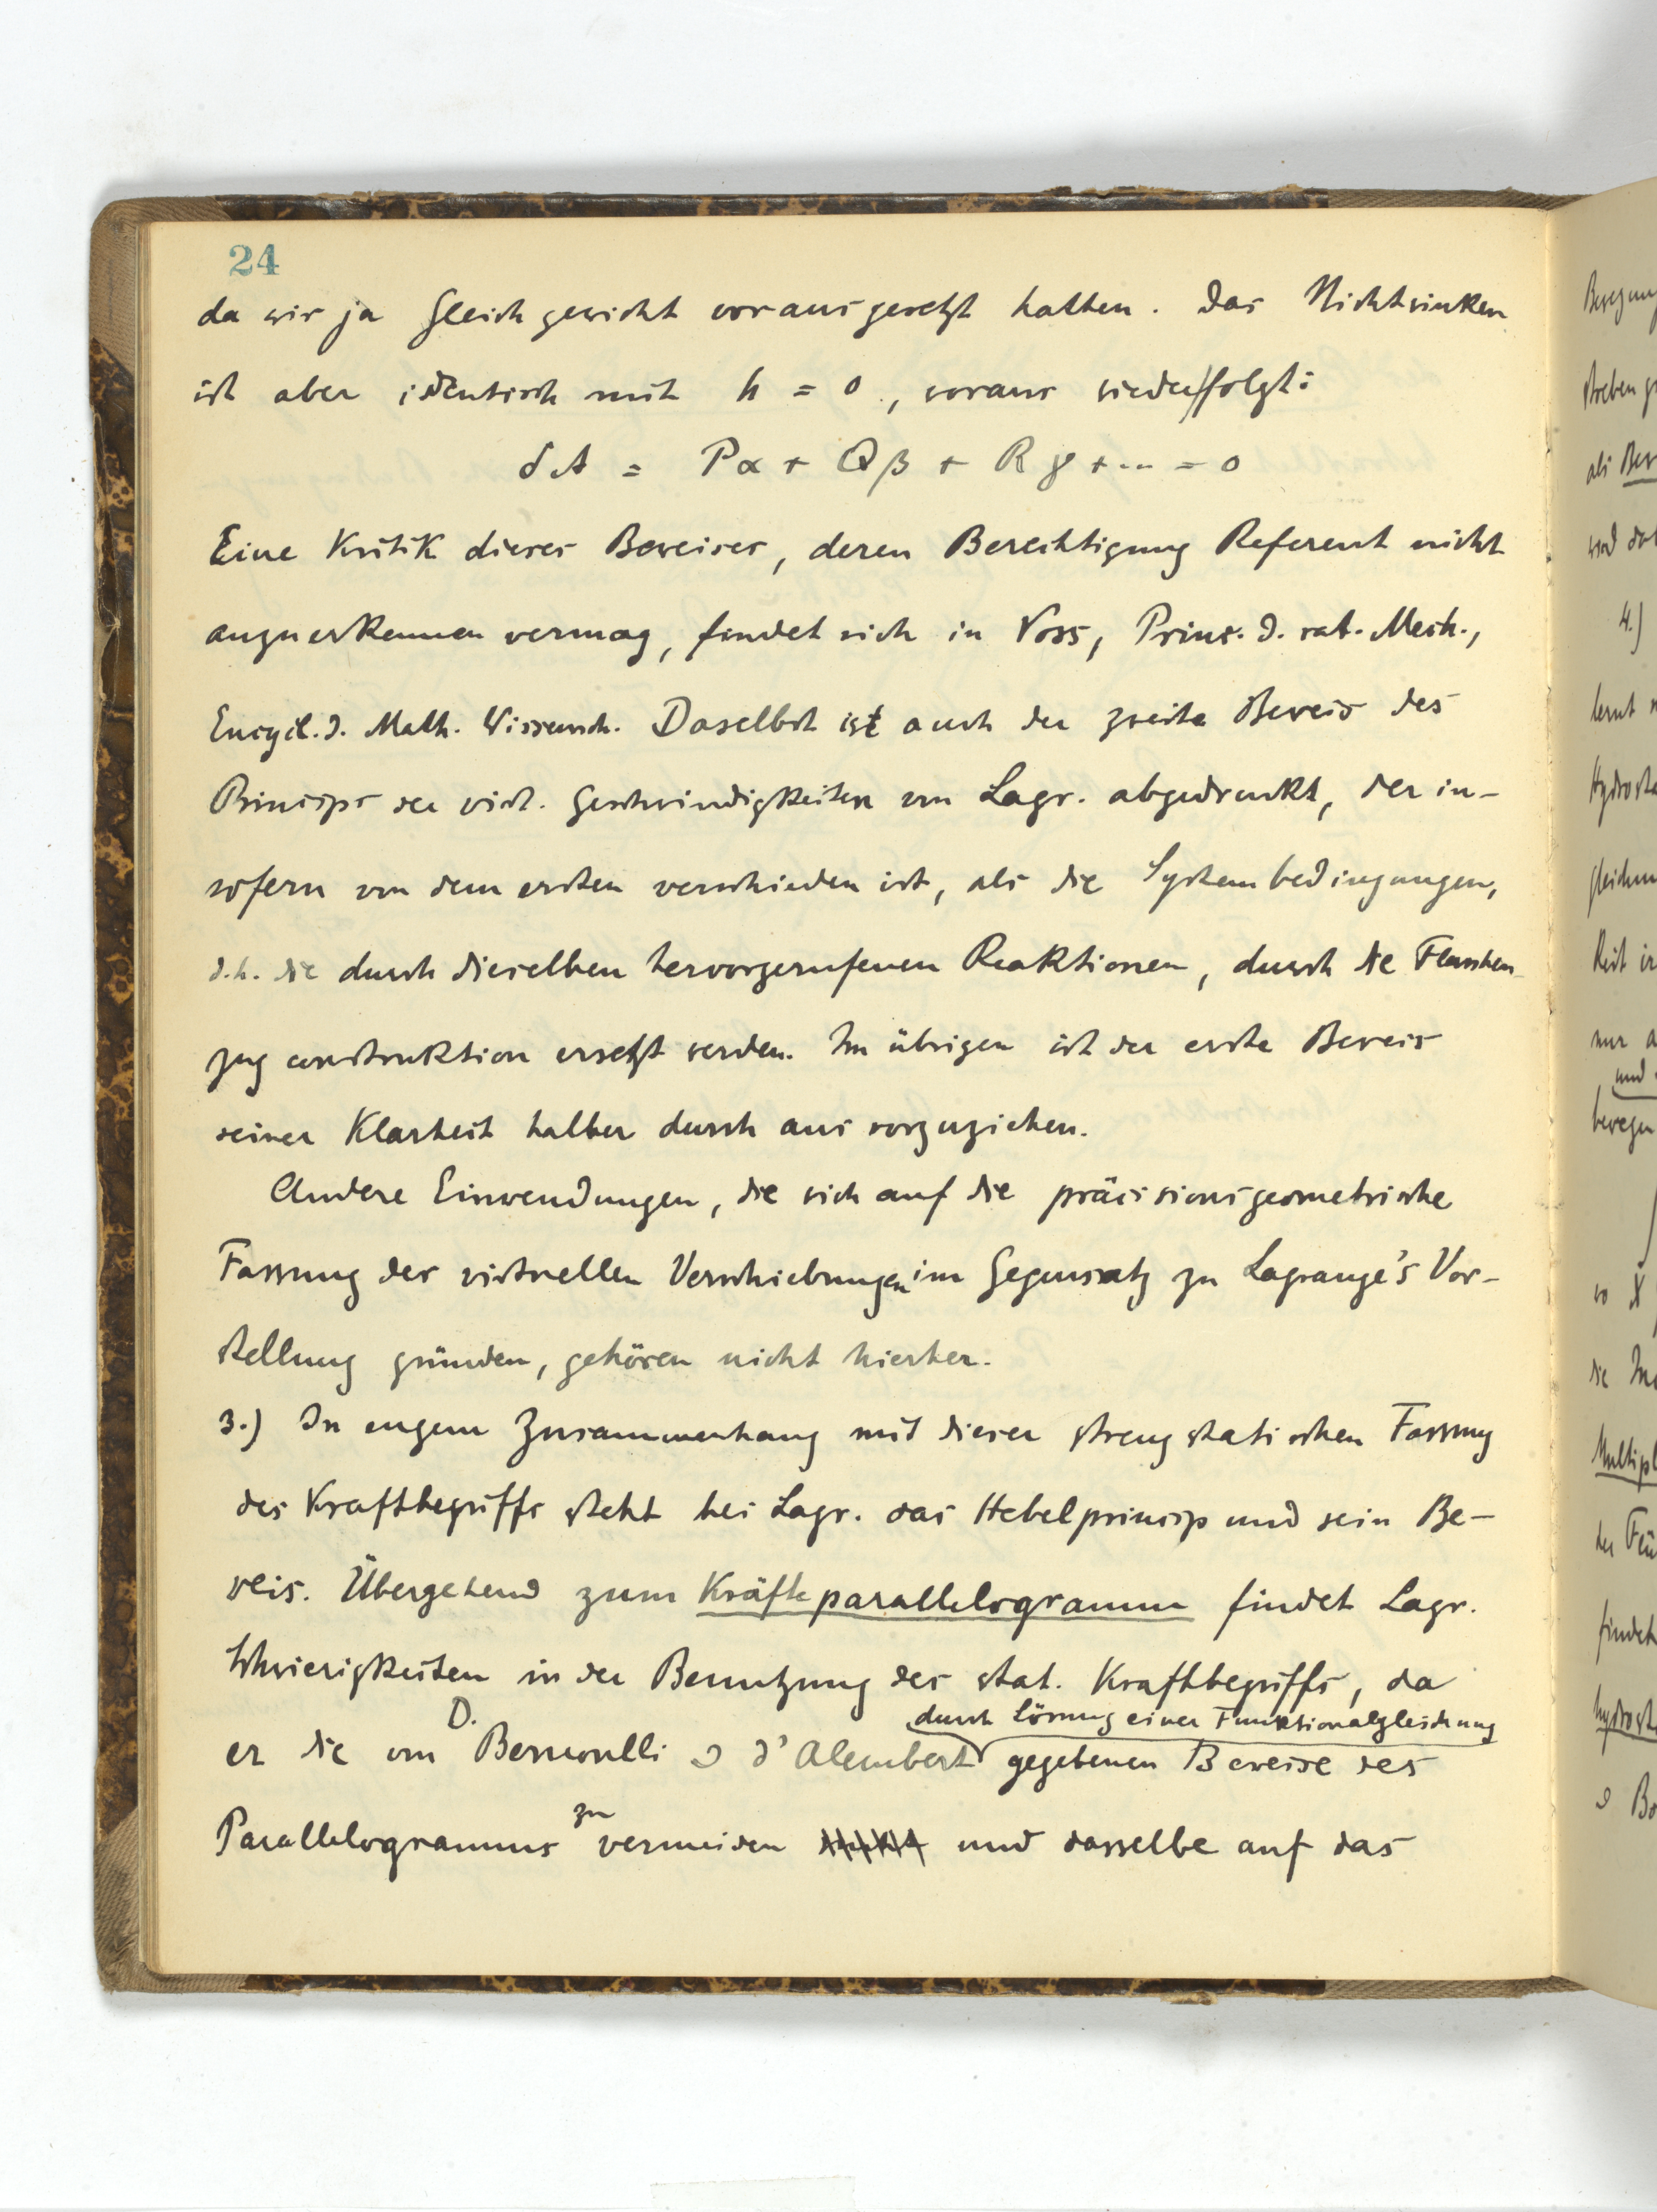 24
da wir ja Gleichgewicht vorausgesetzt hatten. Das Nichtsinken
ist aber identisch mit h = 0, woraus wieder folgt:
δA = Pα + Qβ + Rγ + ... = 0
Eine Kritik dieses Beweises, deren Berechtigung Referent nicht
anzuerkennen vermag, findet sich in Voss, Prinz. d. rat. Mech.,
Encycl. d. Math. Wissensch. Daselbst ist auch der zweite Beweis des
Princips der virt. Geschwindigkeiten von Lagr. abgedruckt, der in-
sofern von dem ersten verschieden ist, als die Systembedingungen,
d.h. die durch dieselben hervorgerufenen Reaktionen, durch die Flaschen-
zugconstruktion ersetzt werden. Im übrigen ist der erste Beweis
seiner Klarheit halber durchaus vorzuziehen.
Andere Einwendungen, die sich auf die präcisionsgeometrische
Fassung der virtuellen Verschiebungen im Gegensatz zu Lagrange's Vor-
stellung gründen, gehören nicht hierher.
3.) In engem Zusammenhang mit dieser streng statischen Fassung
des Kraftbegriffs steht bei Lagr. das Hebelprincip und sein Be-
weis. Übergehend zum Kräfteparallelogramm findet Lagr.
Schwierigkeiten in der Benutzung des stat. Kraftbegriffs, da
er die von D. Bernoulli & d'Alembert durch Lösung einer Funktionalgleichung gegebenen Beweise des
Parallelogramms zu vermeiden und dasselbe auf das